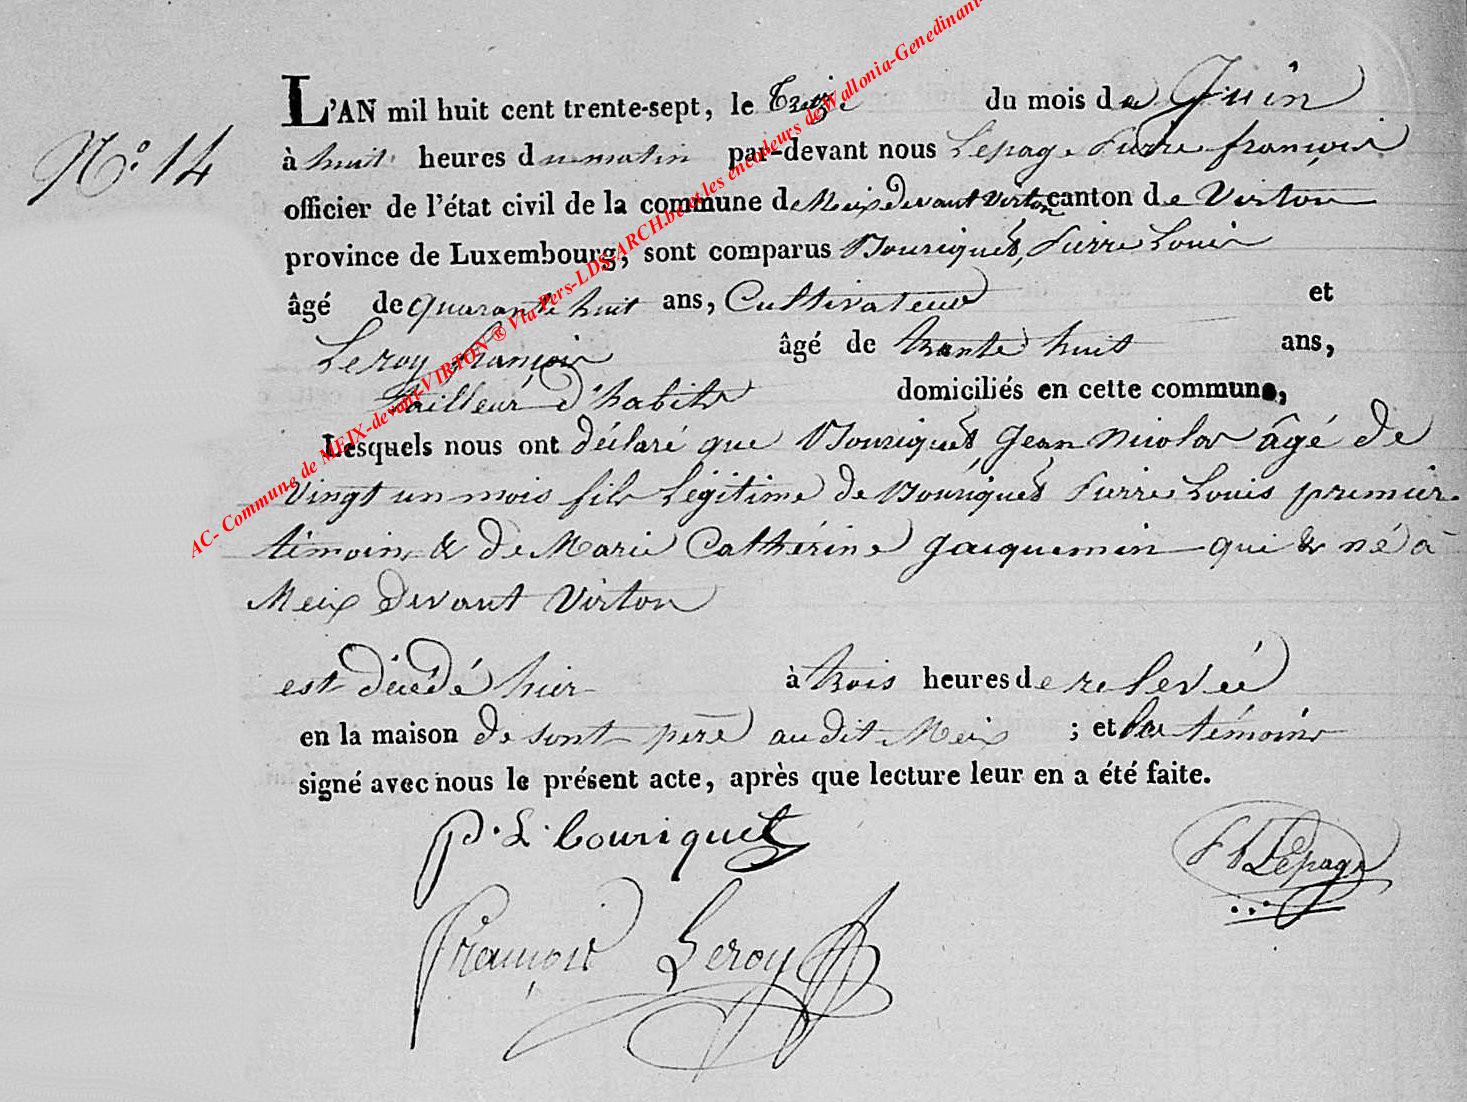 N° 14
L'AN mil huit cent trente-sept, le Treize du mois de Juin
à huit heures du matin par-devant nous Lepage Pierre françois
officier de l'état civil de la commune de Meix devant Virton canton de Virton
province de Luxembourg, sont comparus Bouriquet, Pierre Louis
âgé de quarante huit ans, Cultivateur et
Leroy françois âgé de trente huit ans,
tailleur d'habits domiciliés en cette commune,
Lesquels nous ont déclaré que Bouriquet, Jean Nicolas âgé de
Vingt un mois fils Légitime de Bouriquet Pierre Louis premier
témoin & de Marie Catherine Jacquemin qui est né à
Meix devant Virton
est décédé hier à trois heures de relevée
en la maison de sont père au dit Meix ; et les témoins
signé avec nous le présent acte, après que lecture leur en a été faite.
P. L. bouriquet
Lepage
françois Leroy
AC- Commune de MEIX-devant-VIRTON ® Via Pers-LDS-ARCH.be et les encodeurs de Wallonia-Genedinant